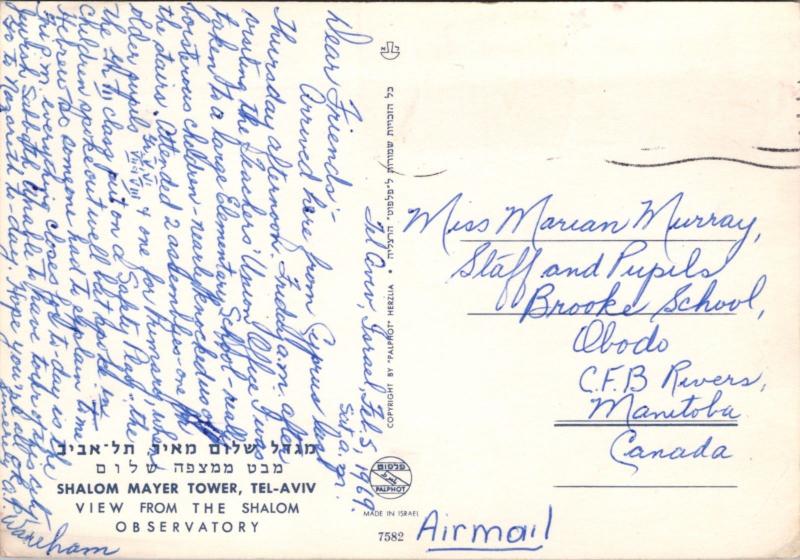 Tel Aviv, Israel, Feb. 5, 1969.
Sat. a.m.
Dear Friends:-
Arrived here from Cyprus last
Thursday afternoon. Friday a.m. after
visiting the Teachers' Union Office I was
taken to a large Elementary School - real
boisterous children - nearly knocked us off
the stairs. Attended 2 assemblies - one for
older pupils & one for Primary, where
the 4th class put on a Safety Play. The
children spoke out well but spoke in
Hebrew so someone had to explain to me
everything closes for to-day is the
Jewish Sabbath
Go to Nazareth to-day. Hope you're all
O.K. Wareham
מגדל שלום מאיר תל-אביב
מבט ממצפה שלום
SHALOM MAYER TOWER, TEL-AVIV
VIEW FROM THE SHALOM
OBSERVATORY
כל הזכויות שמורות ל"פלפוט" הרצליה • COPYRIGHT BY "PALPHOT" HERZLIA
פלפוט
PALPHOT
MADE IN ISRAEL
7582
Airmail
Miss Marian Murray,
Staff and Pupils
Brooke School,
Obodo
C.F.B Rivers,
Manitoba
Canada